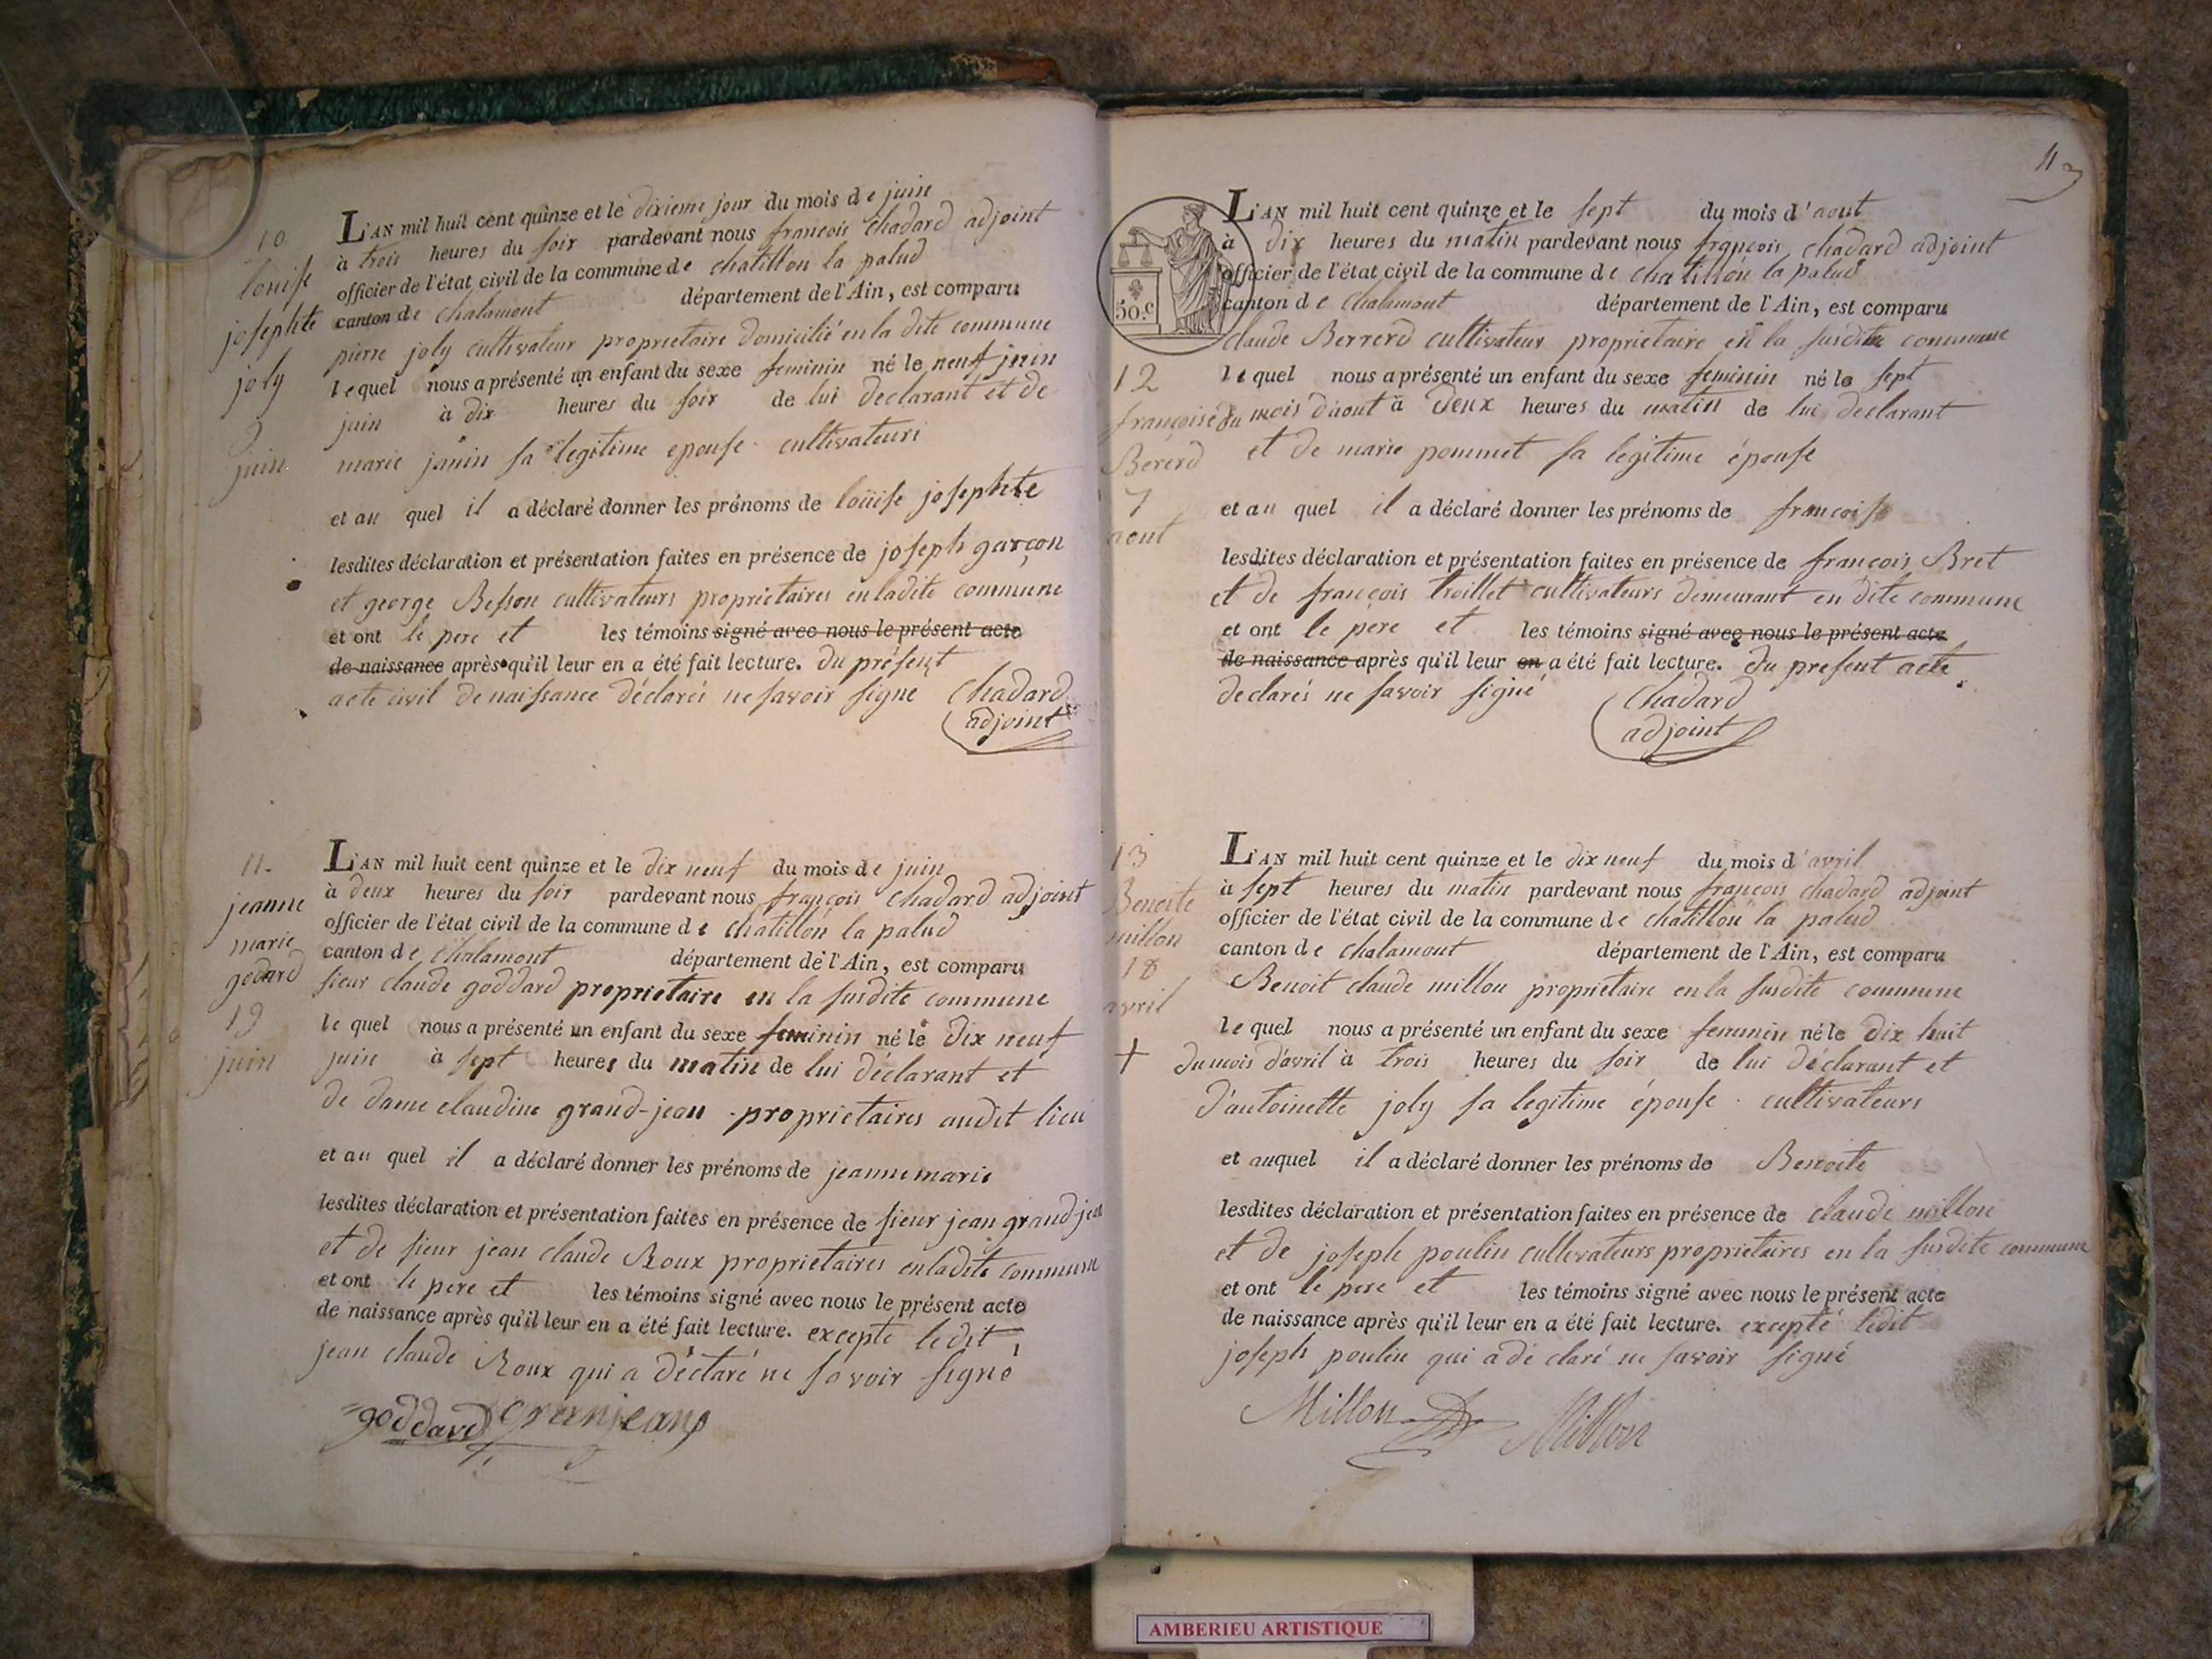 10.
louise
josephte
joly
9
juin
L'AN mil huit cent quinze et le dixieme jour du mois de juin
à trois heures du soir pardevant nous francois chadard adjoint
officier de l'état civil de la commune de chatillon la palud
canton de chalamont département de l'Ain, est comparu
pierre joly cultivateur proprietaire domicilié en la dite commune
lequel nous a présenté un enfant du sexe feminin né le neuf juin
juin à dix heures du soir de lui declarant et de
marie janin sa legitime epouse cultivateurs
et au quel il a déclaré donner les prénoms de loüise josephte
lesdites déclaration et présentation faites en présence de joseph garçon
et george Besson cultivateurs proprietaires en ladite commune
et ont le pere et les témoins signé avec nous le présent acte
de naissance après qu'il leur en a été fait lecture. du présent
acte civil de naissance déclarés ne savoir signe Chadard
adjoint
11.
jeanne
marie
godard
19
juin
L'AN mil huit cent quinze et le dix neuf du mois de juin
à deux heures du soir pardevant nous françois chadard adjoint
officier de l'état civil de la commune de chatillon la palud
canton de chalamont département de l'Ain, est comparu
sieur claude goddard proprietaire en la susdite commune
le quel nous a présenté un enfant du sexe feminin né le dix neuf
juin à sept heures du matin de lui déclarant et
de dame claudine grand-jean proprietaires audit lieu
et au quel il a déclaré donner les prénoms de jeanne marie
lesdites déclaration et présentation faites en présence de sieur jean grand jean
et de sieur jean claude Roux proprietaires en ladite commune
et ont le pere et les témoins signé avec nous le présent acte
de naissance après qu'il leur en a été fait lecture. excepté ledit
jean claude Roux qui a déclaré ne savoir signé
goddard Granjean
11
50.c
L'AN mil huit cent quinze et le sept du mois d'aout
à dix heures du matin pardevant nous françois chadard adjoint
officier de l'état civil de la commune de chatillon la palud
canton de chalamont département de l'Ain, est comparu
claude Berrerd cultivateur proprietaire en la susdite commune
12
françoise
Bererd
7
aout
le quel nous a présenté un enfant du sexe feminin né le sept
du mois d'aout à deux heures du matin de lui declarant
et de marie pommet sa legitime épouse
et au quel il a déclaré donner les prénoms de françoise
lesdites déclaration et présentation faites en présence de francois Bret
et de françois troillet cultivateurs demeurant en dite commune
et ont le pere et les témoins signé avec nous le présent acte
de naissance après qu'il leur en a été fait lecture. du present acte
declarés ne savoir signé Chadard
adjoint
13
Benoite
millon
18
avril
L'AN mil huit cent quinze et le dix neuf du mois d'avril
à sept heures du matin pardevant nous françois chadard adjoint
officier de l'état civil de la commune de chatillon la palud
canton de chalamont département de l'Ain, est comparu
Benoit claude millon proprietaire en la susdite commune
le quel nous a présenté un enfant du sexe feminin né le dix huit
+ du mois d'avril à trois heures du soir de lui déclarant et
d'antoinette joly sa legitime épouse cultivateurs
et auquel il a déclaré donner les prénoms de Benoite
lesdites déclaration et présentation faites en présence de claude millon
et de joseph poulin cultivateurs proprietaires en la susdite commune
et ont le pere et les témoins signé avec nous le présent acte
de naissance après qu'il leur en a été fait lecture. excepté ledit
joseph poulin qui a déclaré ne savoir signé
Millon Millon
AMBERIEU ARTISTIQUE